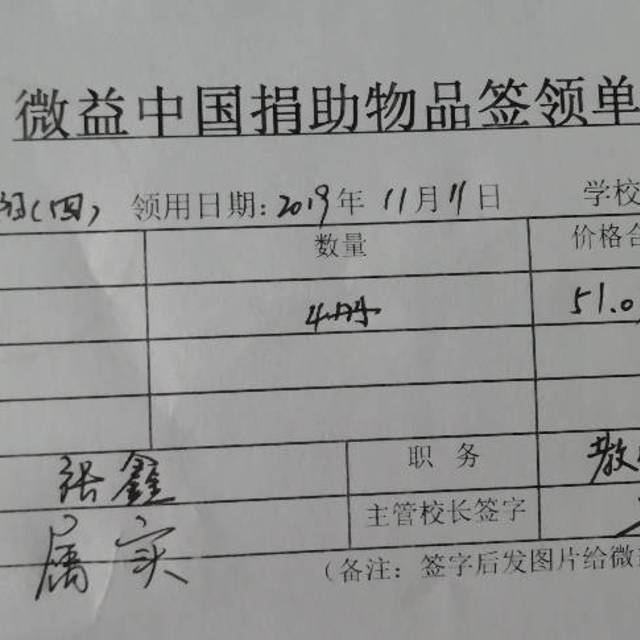 微益中国捐助物品签领单
(四) 领用日期:2019年 11月11日 学校
数量 价格合
4册 51.0
张鑫 职 务 教
属实 主管校长签字
(备注: 签字后发图片给微